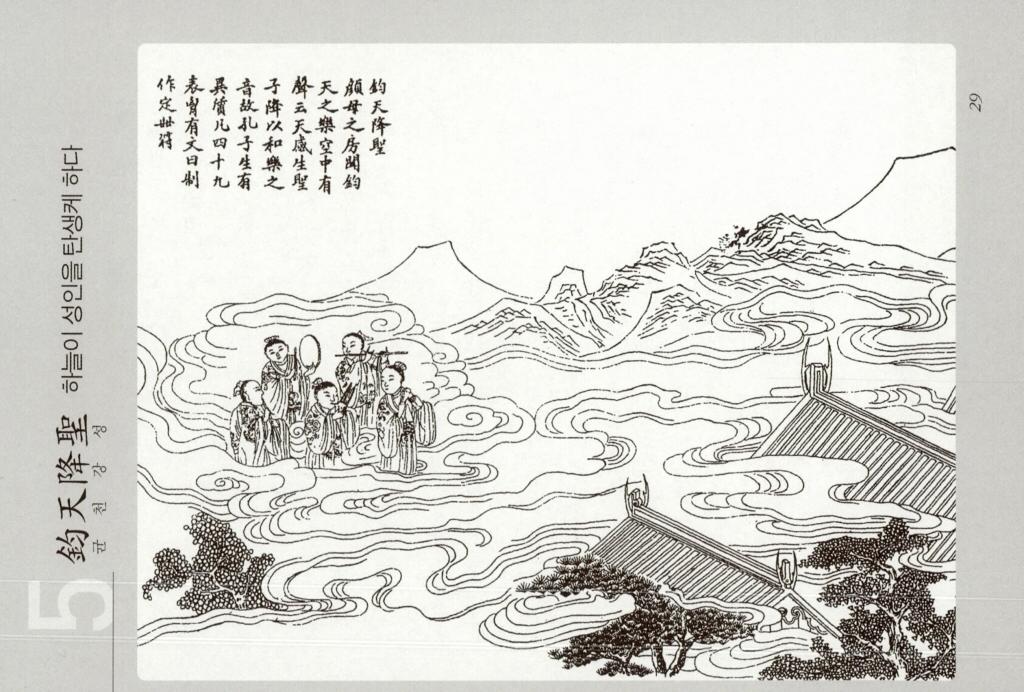 5
鈞天降聖
균 천 강 성
하늘이 성인을 탄생케 하다
鈞天降聖
顔母之房聞鈞
天之樂空中有
聲云天感生聖
子降以和樂之
音故孔子生有
異質凡四十九
表胷有文曰制
作定世符
29